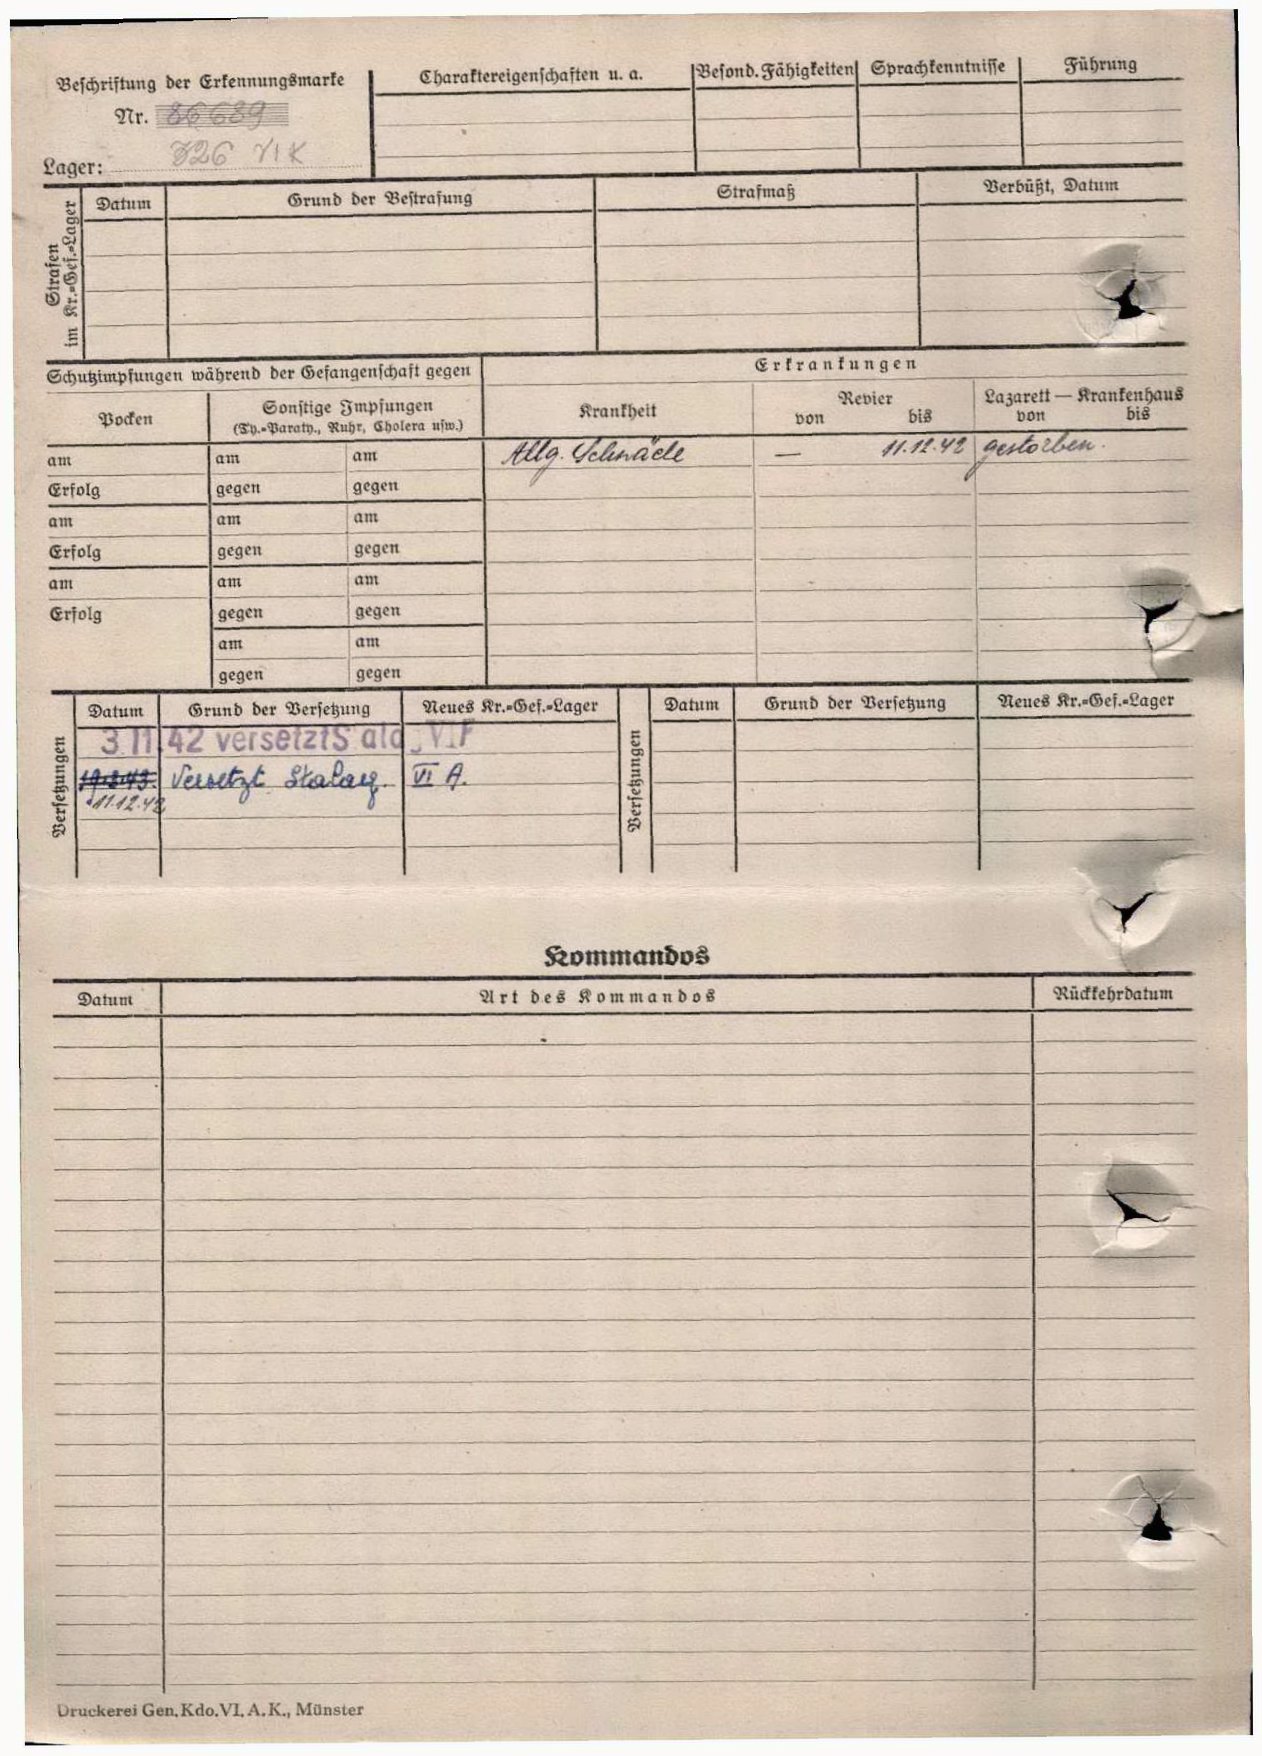 Beschriftung der Erkennungsmarke
Nr. 86689
326 VI K
Lager:
Charaktereigenschaften u. a.
Besond. Fähigkeiten
Sprachkenntnisse
Führung
Strafen im Kr.=Gef.=Lager
Datum
Grund der Bestrafung
Strafmaß
Verbüßt, Datum
Schutzimpfungen während der Gefangenschaft gegen
Erkrankungen
Pocken
Sonstige Impfungen
(Ty.=Paraty., Ruhr, Cholera usw.)
Krankheit
Revier
von bis
Lazarett — Krankenhaus
von bis
am am am
Allg. Schwäche — 11.12.42 gestorben.
Erfolg gegen gegen
am am am
Erfolg gegen gegen
am am am
Erfolg gegen gegen
am am
gegen gegen
Versetzungen
Datum
Grund der Versetzung
Neues Kr.=Gef.=Lager
Versetzungen
Datum
Grund der Versetzung
Neues Kr.=Gef.=Lager
3.11.42 versetzt S alag VI F
Versetzt Stalag. VI A.
11.12.42
Kommandos
Datum
Art des Kommandos
Rückkehrdatum
Druckerei Gen. Kdo. VI. A. K., Münster